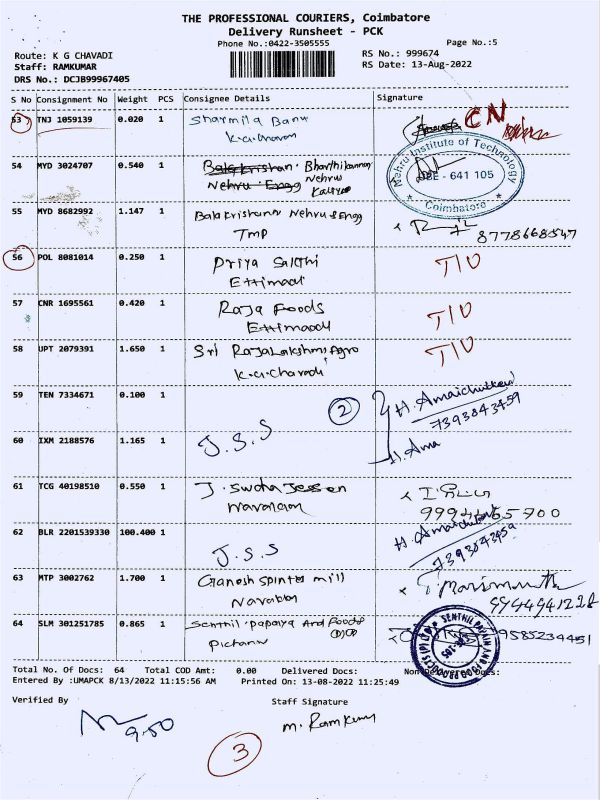 THE PROFESSIONAL COURIERS, Coimbatore
Delivery Runsheet - PCK
Phone No.:0422-3505555
Page No.:5
Route: K G CHAVADI
Staff: RAMKUMAR
DRS No.: DCJB99967405
RS No.: 999674
RS Date: 13-Aug-2022
S No Consignment No Weight PCS Consignee Details Signature
53 TNJ 1059139 0.020 1 Sharmila Banu CN
K.G.Chavadi
54 MYD 3024707 0.540 1 Balakrishan. Bharthikannan
Nehru Engg Nehru
Nehru Institute of Technology
641 105
Coimbatore
55 MYD 8682992 1.147 1 Balakrishann Nehru Engg
TMP 8778668547
56 POL 8081014 0.250 1 Priya Sakthi T/O
Ettimadi
57 CNR 1695561 0.420 1 Raja Foods T/O
Ettimadi
58 UPT 2079391 1.650 1 Sri RajaLakshmi Agro T/O
K.G.Chavadi
59 TEN 7334671 0.100 1 2 H. 7393843459
60 IXM 2188576 1.165 1 J.S.S H. Ama
61 TCG 40198510 0.550 1 J. Swcha Jessen
Navarasam 9994465700
62 BLR 2201539330 100.400 1 J.S.S H. 7393843459
63 MTP 3002762 1.700 1 Ganesh spinter mill Marimuthu
9944941228
64 SLM 301251785 0.865 1 Senthil papaya And Foods
(P) 9585234451
SENTHIL PAPAIN AND FOOD PRODUCTS (P) LTD
Total No. Of Docs: 64 Total COD Amt: 0.00 Delivered Docs: Non Delivered Docs:
Entered By :UMAPCK 8/13/2022 11:15:56 AM Printed On: 13-08-2022 11:25:49
Verified By Staff Signature
9.50 M. Ramkumar
3